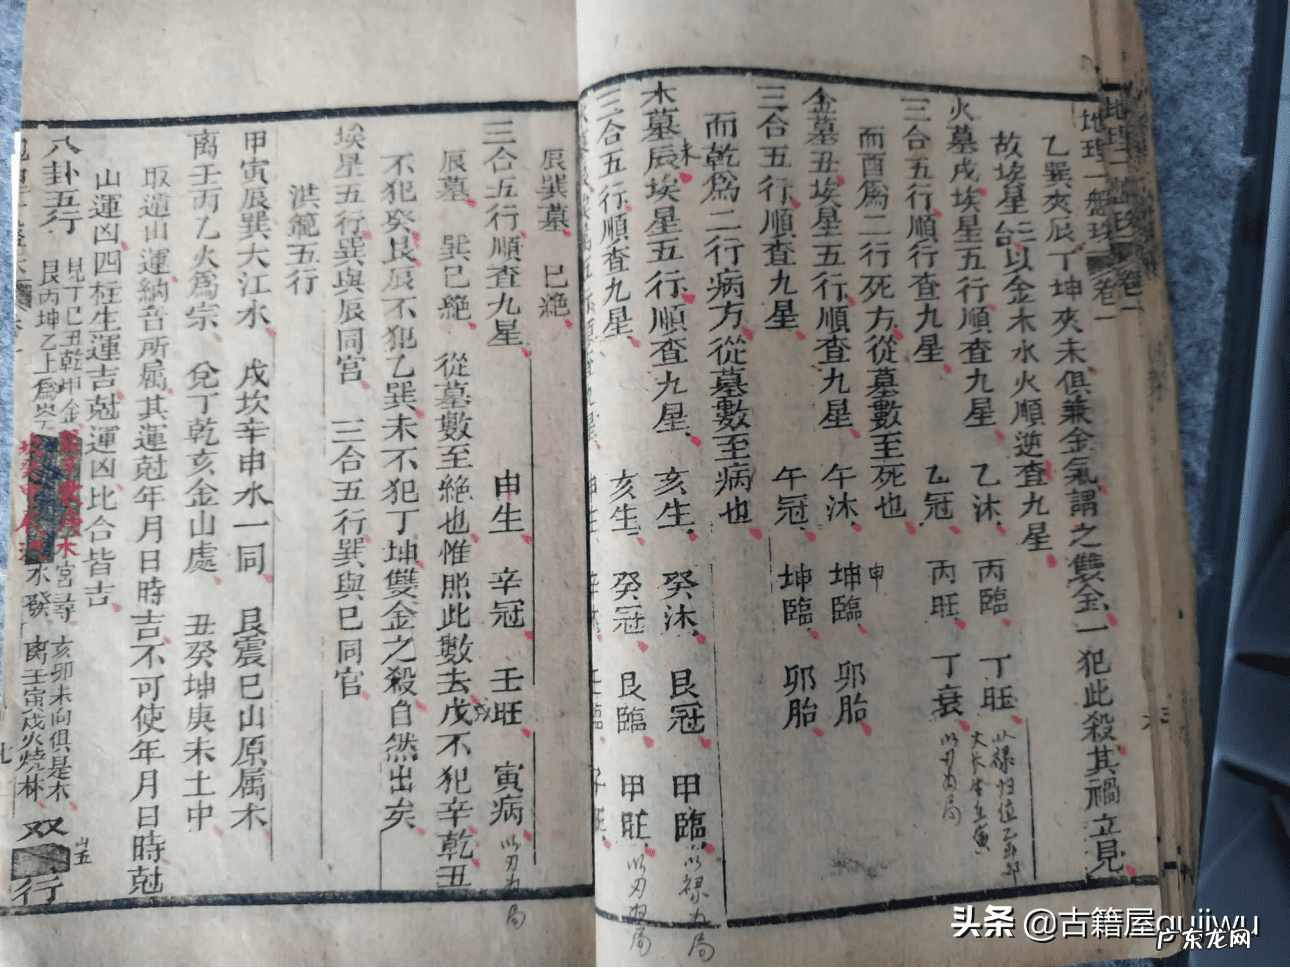 地理一盤珠 卷一
乙巽夾辰丁坤夾未俱兼金氣謂之雙金一犯此殺其禍立見
故埃星 以金木水火順逆查九星
火墓戌埃星五行順查九星 乙沐 丙臨 丁旺
三合五行順行查九星 乙冠 丙旺 丁衰
而酉為二行死方從墓數至死也
金墓丑埃星五行順查九星 午沐 坤臨 卯胎
申
三合五行順查九星 午冠 坤臨 卯胎
而乾為二行病方從墓數至病也
木墓辰埃星五行順查九星 亥生 癸沐 艮冠 甲臨
未
三合五行順查九星 亥生 癸冠 艮臨 甲旺
以刃為局
辰巽墓 巳絶
三合五行順查九星 申生 辛冠 壬旺 寅病
以刃為局
辰墓 巽巳絶 從墓數至絶也惟照此數去戌不犯辛乾丑
不犯癸艮辰不犯乙巽未不犯丁坤雙金之殺自然出矣
埃星五行巽與辰同宫 三合五行巽與巳同宫
洪範五行
甲寅辰巽大江水 戌坎辛申水一同 艮震巳山原属木
离壬丙乙火為宗 兌丁乾亥金山處 丑癸坤庚未土中
取道山運納音所属其運尅年月日時吉不可使年月日時尅
山運凶四柱生運吉尅運凶比合皆吉
八卦五行 見丁巳丑乾甲金
艮丙坤乙上為
木宮尋 亥卯未向俱是木
水發 离壬寅戌火燒林
双 行
山五
九
头条 @古籍屋gujiwu
广东龙网